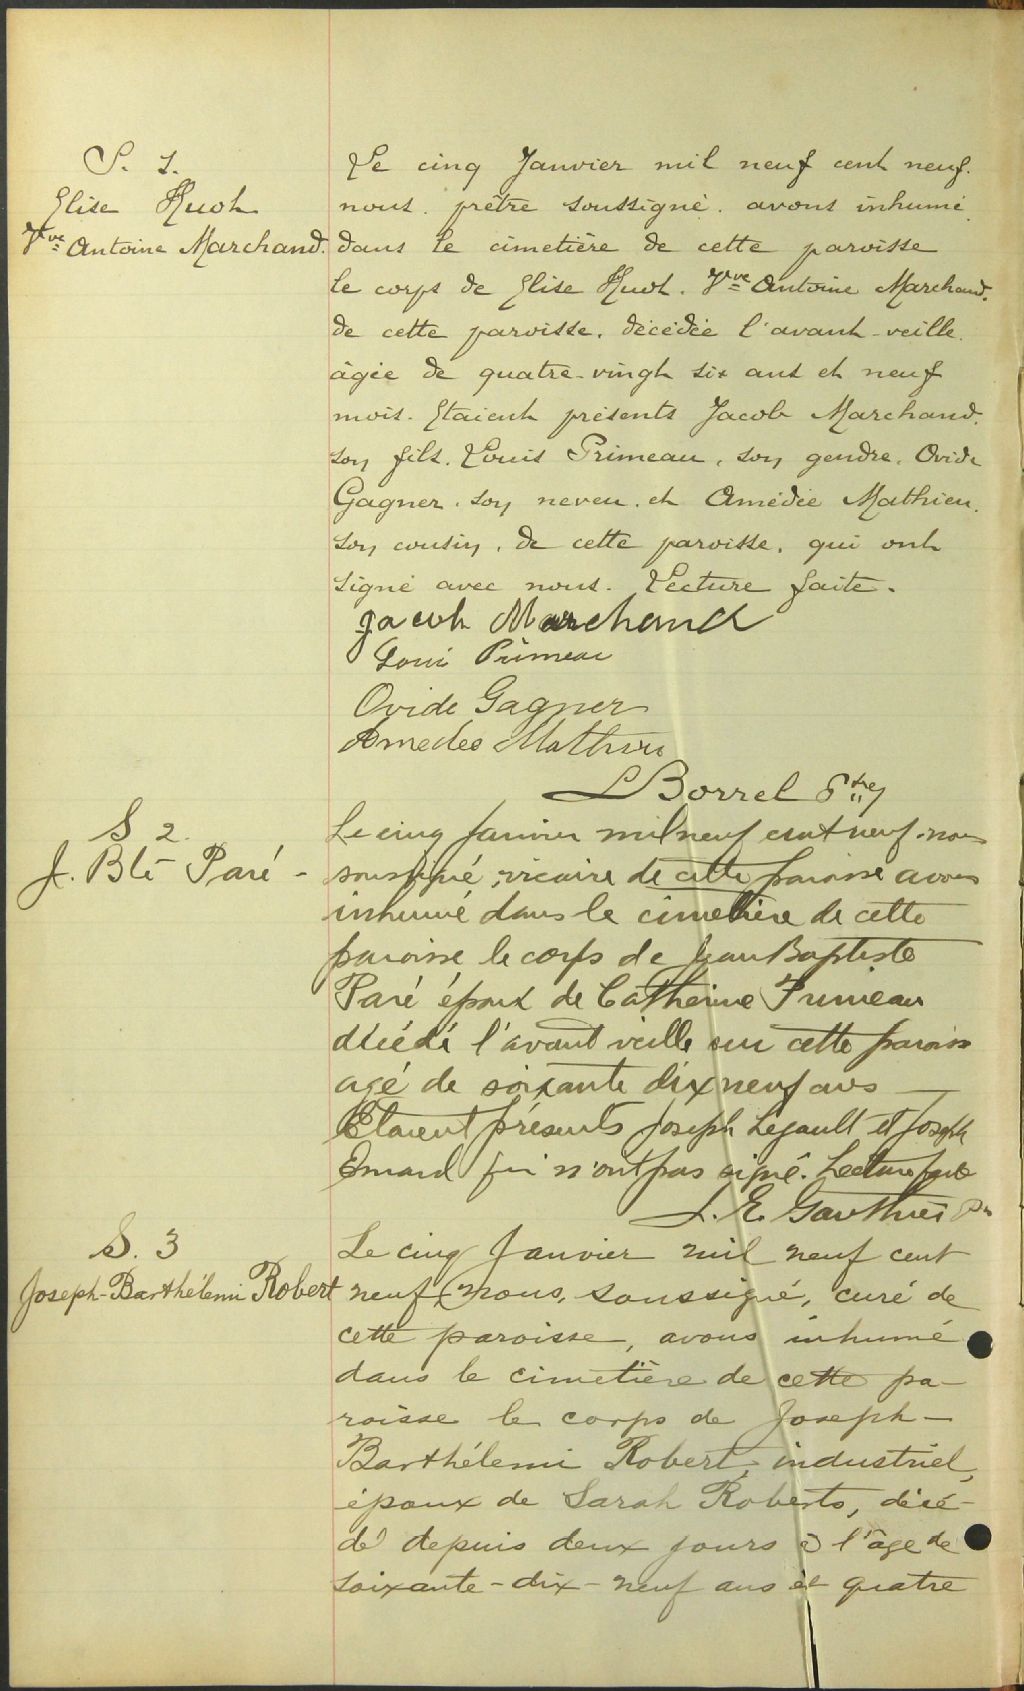 S. 1.
Elise Huot
Vve Antoine Marchand.
Le cinq Janvier mil neuf cent neuf.
nous. prêtre soussigné. avons inhumé.
dans le cimetière de cette paroisse
le corps de Elise Huot. Vve Antoine Marchand.
de cette paroisse. décédée l'avant-veille.
âgée de quatre-vingt six ans et neuf
mois. Etaient présents Jacob Marchand.
son fils. Louis Primeau, son gendre. Ovide
Gagner. son neveu. et Amédée Mathieu.
son cousin. de cette paroisse. qui ont
signé avec nous. Lecture faite.
Jacob Marchand
Loui Primeau
Ovide Gagner
Amedeo Mathieu
L Borrel Ptre
S 2.
J. Bte Paré -
Le cinq Janvier mil neuf cent neuf. nous
soussigné, vicaire de cette paroisse avons
inhumé dans le cimetière de cette
paroisse le corps de Jean Baptiste
Paré époux de Catherine Primeau
décédé l'avant veille sur cette paroisse
agé de soixante dix neuf ans —
Etaient présents Joseph Legault et Joseph
Emard qui n'ont pas signé. Lecture faite
J. E. Gauthier Ptre
S. 3
Joseph-Barthélemi Robert
Le cinq Janvier mil neuf cent
neuf, nous, soussigné, curé de
cette paroisse, avons inhumé
dans le cimetière de cette pa-
roisse le corps de Joseph-
Barthélemi Robert, industriel,
époux de Sarah Roberts, décé-
dé depuis deux jours à l'âge de
soixante-dix-neuf ans et quatre